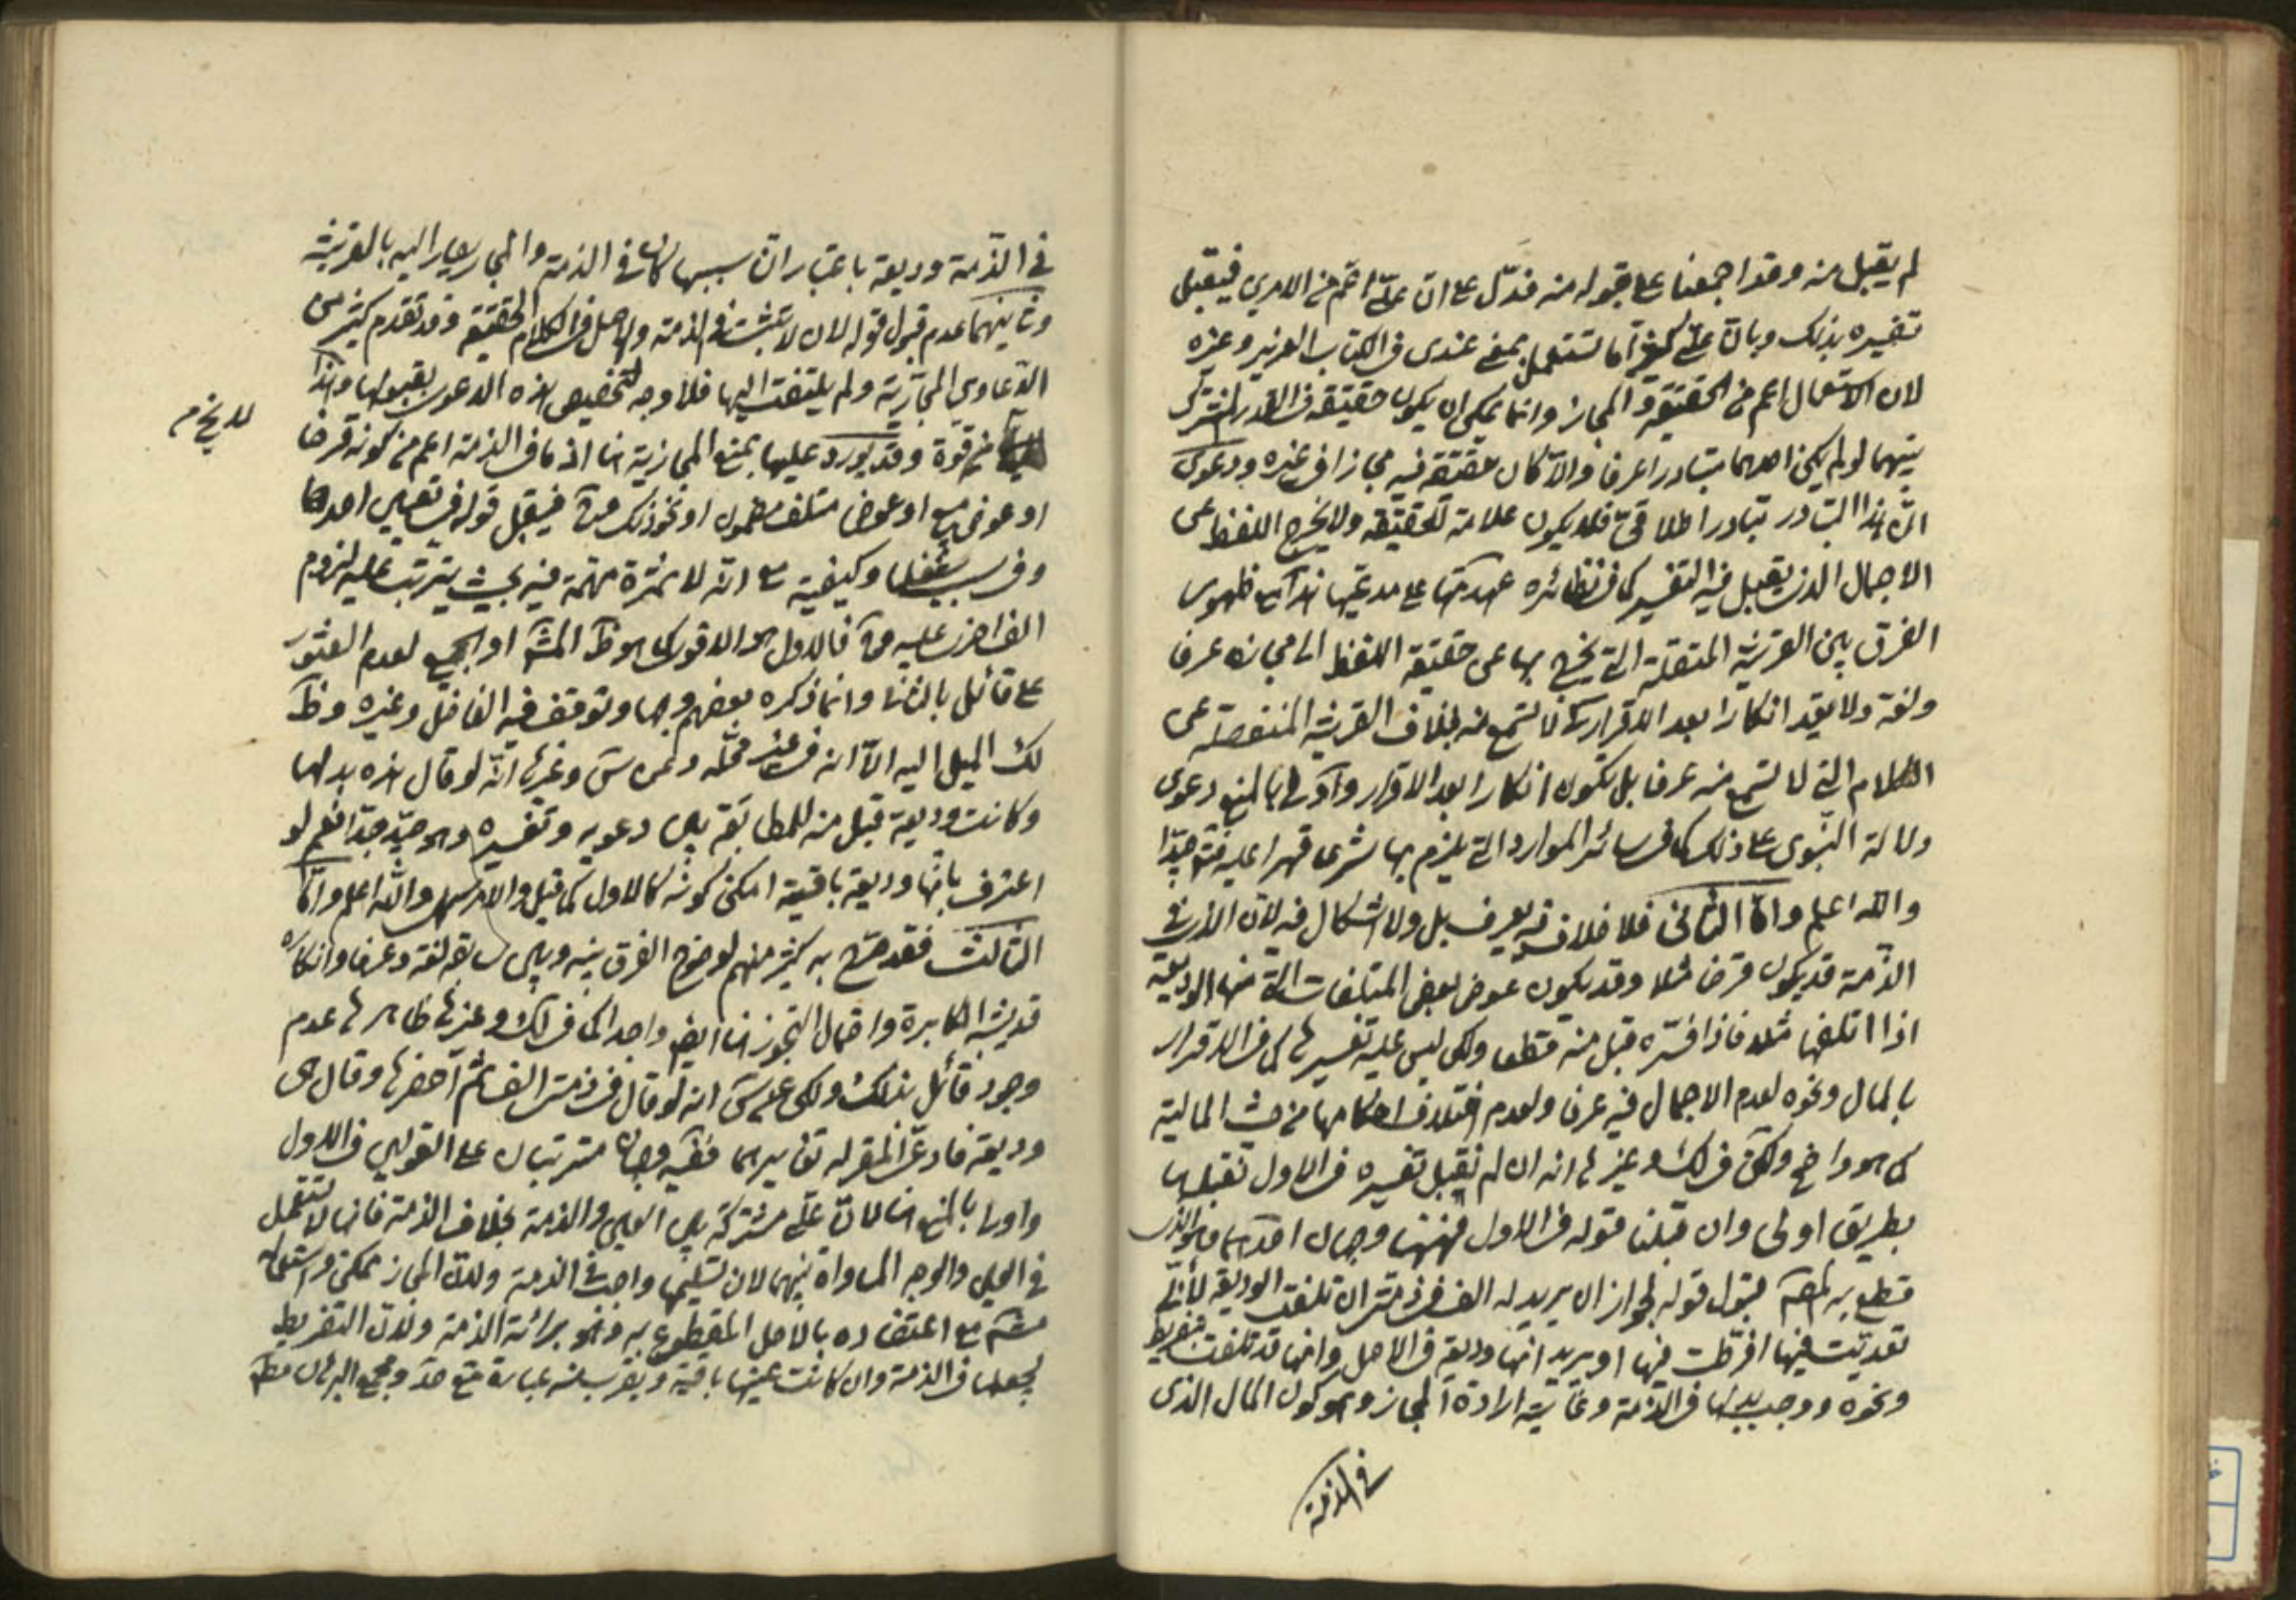 لم يقبل منه وقد اجمعنا على قبوله منه فدل على ان علىّ اعم من الامرين فيقبل
تفسيره بذلك وبانّ علىّ كغيرها تستعمل بمعنى عندى فى الكتاب العزيز وغيره
لان الاستعمال اعم من الحقيقة والمجاز وانما يمكن ان يكون حقيقة فى القدر المشترك
بينهما لو لم يكن احدهما متبادرا عرفا والا كان حقيقة فيه مجازا فى غيره ودعوى
انّ هذا التبادر تبادر اطلاقى فلا يكون علامة للحقيقة ولا يخرج اللفظ عن
الاجمال الذى يقبل فيه التفسير كما فى نظائره عهدتها على مدعيها هذا مع ظهور
الفرق بين القرينة المتصلة التى يخرج بها عن حقيقة اللفظ الى مجازه عرفا
ولغة ولا يعدّ انكارا بعد الاقرار لانها تسمع منه بخلاف القرينة المنفصلة عن
الكلام التى لا تسمع منه عرفا بل تكون انكارا بعد الاقرار واولى بالمنع دعوى
دلالة النبوى على ذلك كما فى سائر الموارد التى يلزم بها شرعا قهرا عليه فتم جدّا
والله اعلم وامّا الثانى فلا خلاف فيه يعرف بل ولا اشكال فيه لان الذى فى
الذمّة قد يكون قرضا مثلا وقد يكون عوض بعض المتلفات التى منها الوديعة
اذا اتلفها مثلا فاذا فسّره قبل منه قطعا ولكن ليس عليه تفسيرها كما فى الاقرار
بالمال ونحوه لعدم الاجمال فيه عرفا ولعدم اختلاف احكامها من حيث المالية
كما هو واضح ولكن فى لك وغيرها انه ان لم نقبل تفسيره فى الاول نقبله هنا
بطريق اولى وان قبلنا قوله فى الاول فهنا وجهان احدهما وهو الذى
قطع به المصّ قبول قوله لجواز ان يريد له الف فى ذمتى ان تلفت الوديعة لأنّى
تعديت فيها او فرّطت فيها او يريد انها وديعة فى الاصل وانها قد تلفت بتفريط
ونحوه ووجب بدلها فى الذمة وغايته ارادة المجاز وهو كون المال الذى
فى الذمة
فى الذّمة وديعة باعتبار انّ سببها كان فى الذمة والمجاز يصار اليه بالقرينة
وثانيهما عدم قبول قوله لان لا تثبت فى الذمة والاصل فى الكلام الحقيقة وقد تقدم كثير من
الدّعاوى المجازية ولم يلتفت اليها فلا وجه لتخصيص هذه الدعوى بقبولها وهذا
لا يخ من
من قوة وقد يورد عليها بمنع المجازية هنا اذ ما فى الذمة اعم من كونه قرضا
او عوض مبيع او عوضا متلف مضمون او نحو ذلك فيقبل قوله فى تعيين احدها
وفى سبب شغلها وكيفيته مع انه لا ثمرة مهمة فيه بحيث يترتب عليه لزوم
فالاول هو الاقوى كما هو ظ المشهور او الجميع لعدم العثور
على قائل بالثانى وانما ذكره بعضهم وجها وتوقف فيه الفاضل وغيره وظ
لك الميل اليه الا انه فى غير محلّه وعن س وغيرها انّه لو قال هذه بدلها
وكانت وديعة قبل منه للمطابقة بين دعويه وتفسيره وهو جيّد جدّا نعم لو
اعترف بانّها وديعة باقية امكن كونه كالاول كما قيل والامر سهل والله اعلم وامّا
الثالث فقد صرّح به كثير منهم لوضوح الفرق بينه وبين سابقه لغة وعرفا وانكاره
قد يشبه المكابرة واحتمال التجوز هنا ايض واحد الا كما فى لك وغيرها ظاهرها عدم
وجود قائل بذلك ولكن على س انه لو قال فى ذمتى الف ثم احضرها وقال هى
وديعة فادعى المقر له تغايرهما ففيه وجهان مترتبان على القولين فى الاول
واولى بالمنع هنا لانّ علىّ مشتركة بين العين والذمة بخلاف الذمة فانها لا تستعمل
فى العين والوجه المساواة بينهما لان تسليمها واجب فى الذمة ولانّ المجاز ممكن واستعماله
مع اعتضاده بالاصل المقطوع به وهو برائة الذمة ولانّ التفريط
يجعلها فى الذمة وان كانت عينها باقية ويقرب منه عبارة ومجمع البرهان